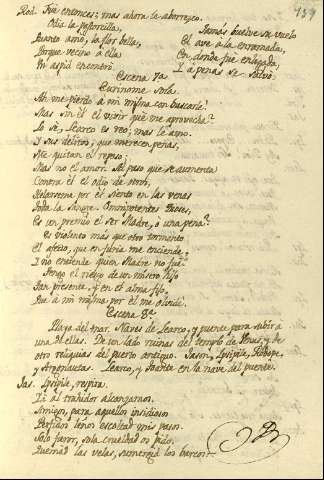 139
Rod. Fue entonces; mas ahora la aborrezco.
Odia la pastorcilla,
Quanto amó, la flor bella,
Porque vecino a ella
Un aspid encontró.
Jamás buelve su vuelo
El ave a la enramada,
En donde fue enlazada,
Y a penas se salvó.
Escena 7a.
Eurinome sola.
Ah me pierdo a mi misma con buscarle!
Mas sin él el vivir que me aprovecha?
Lo sé, Learco es reo; mas le amo.
Y sus delitos, que merecen penas,
Me quitan el reposo;
Mas no el amor. Al paso que se aumenta
Contra él el odio de otros,
Helarseme por él siento en las venas
Toda la sangre. Omnipotentes Dioses,
Es un premio el ser Madre, o una pena?
Es violento más que otro tormento
El afecto, que en furia me enciende,
No entiende quien Madre no fue.
Tengo el riesgo de un misero hijo
Tan presente, y en el alma fijo,
Que a mi misma por él me olvidé.
Escena 8a.
Playa del mar. Naves de Learco, y puente para subir a
una de ellas. De un lado ruinas del templo de Venus, y de
otro reliquias del puerto antiguo. Jason, Ipsipile, Rodope,
y Argonautas. Learco, y Toante en la nave del puente.
Jas. Ipsipile, respira.
Ya al trahidor alcanzamos.
Amigos, para aquellos insidiosos
Perfidos leños escoltad mis pasos.
Solo furor, sola crueldad os pido.
Quemad las velas, sumergid los barcos.